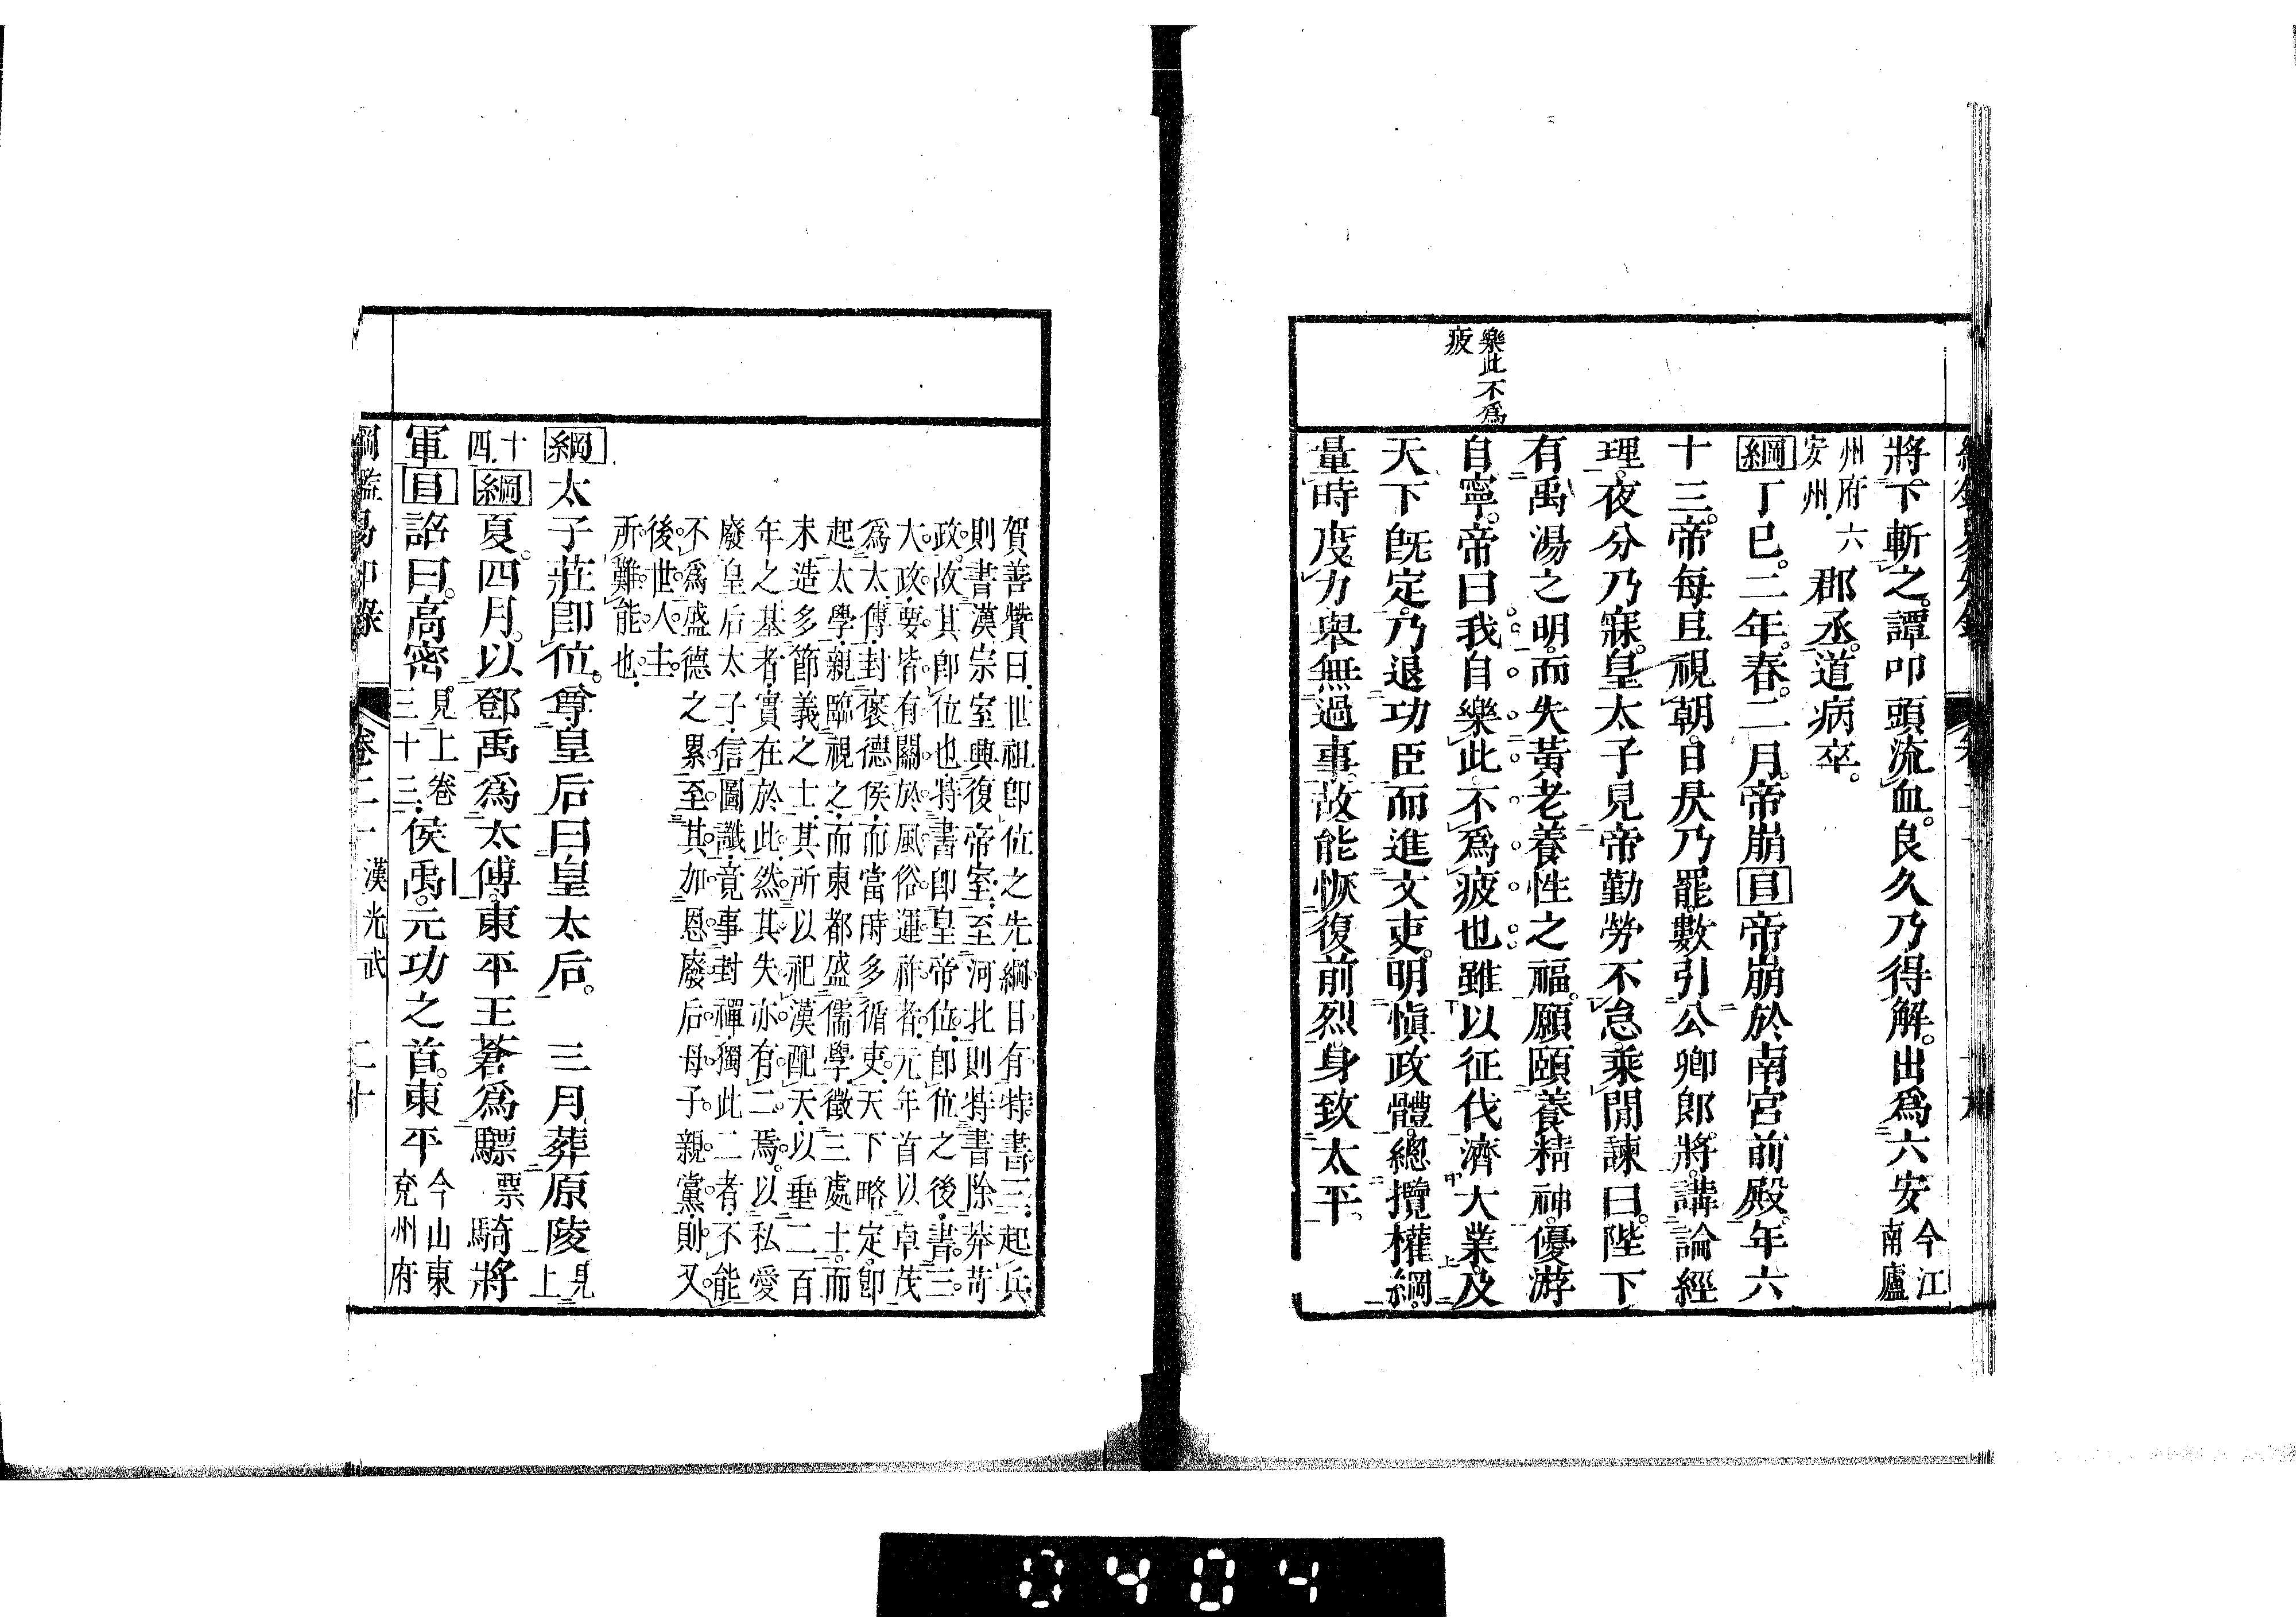 樂此不爲
疲
將下斬之譚叩頭流血良久乃得解出爲六安今江南廬
州府六安州郡丞道病卒
綱丁巳二年春二月帝崩目帝崩於南宮前殿年六
十三帝每旦視朝日昃乃罷數引公卿郎將講論經
理夜分乃寐皇太子見帝勤勞不怠乘閒諫曰陛下
有禹湯之明而失黃老養性之福願頤養精神優游
自寧帝曰我自樂此不爲疲也雖以征伐濟大業及
天下旣定乃退功臣而進文吏明愼政體總攬權綱
量時度力舉無過事故能恢復前烈身致太平
賀善贊曰世祖卽位之先綱目有特書三起兵
則書漢宗室興復帝室至河北則特書除莽苛
政故其卽位也特書卽皇帝位卽位之後書三
大政要皆有關於風俗運祚者元年首以卓茂
爲太傅封褒德侯而當時多循吏天下略定卽
起太學親臨視之而東都盛儒學徵三處士而
末造多節義之士其所以祀漢配天以垂二百
年之基者實在於此然其失亦有二焉以私愛
廢皇后太子信圖讖竟事封禪獨此二者不能
不爲盛德之累至其加恩廢后母子親黨則又
後世人主
所難能也
綱太子莊卽位尊皇后曰皇太后　三月葬原陵見上
十四綱夏四月以鄧禹爲太傅東平王蒼爲驃票騎將
軍目詔曰高密見上卷三十三侯禹元功之首東平今山東兗州府
綱鑑易知錄　卷二十一　漢光武　二十
0404